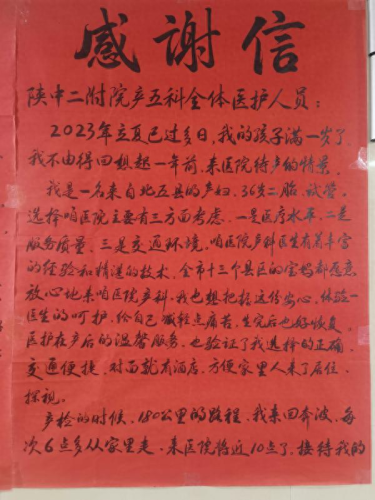 感谢信
陕中二附院产五科全体医护人员：
2023年立夏已过多日，我的孩子满一岁了，
我不由得回想起一年前，来医院待产的情景。
我是一名来自北五县的产妇，36岁二胎，试管。
选择咱医院主要有三方面考虑，一是医疗水平，二是
服务质量，三是交通环境，咱医院产科医生有着丰富
的经验和精湛的技术，全市十三个县区的宝妈都愿意
放心地来咱医院产科，我也想把握这份安心，体验一下
医生的呵护，给自己减轻点痛苦，生完后也好恢复，
医护在产后的温馨服务，也验证了我选择的正确，
交通便捷，对面就有酒店，方便家里人来了居住，
探视。
产检的时候，180公里的路程，我来回奔波，每
次6点多从家里走，来医院将近10点了，接待我的